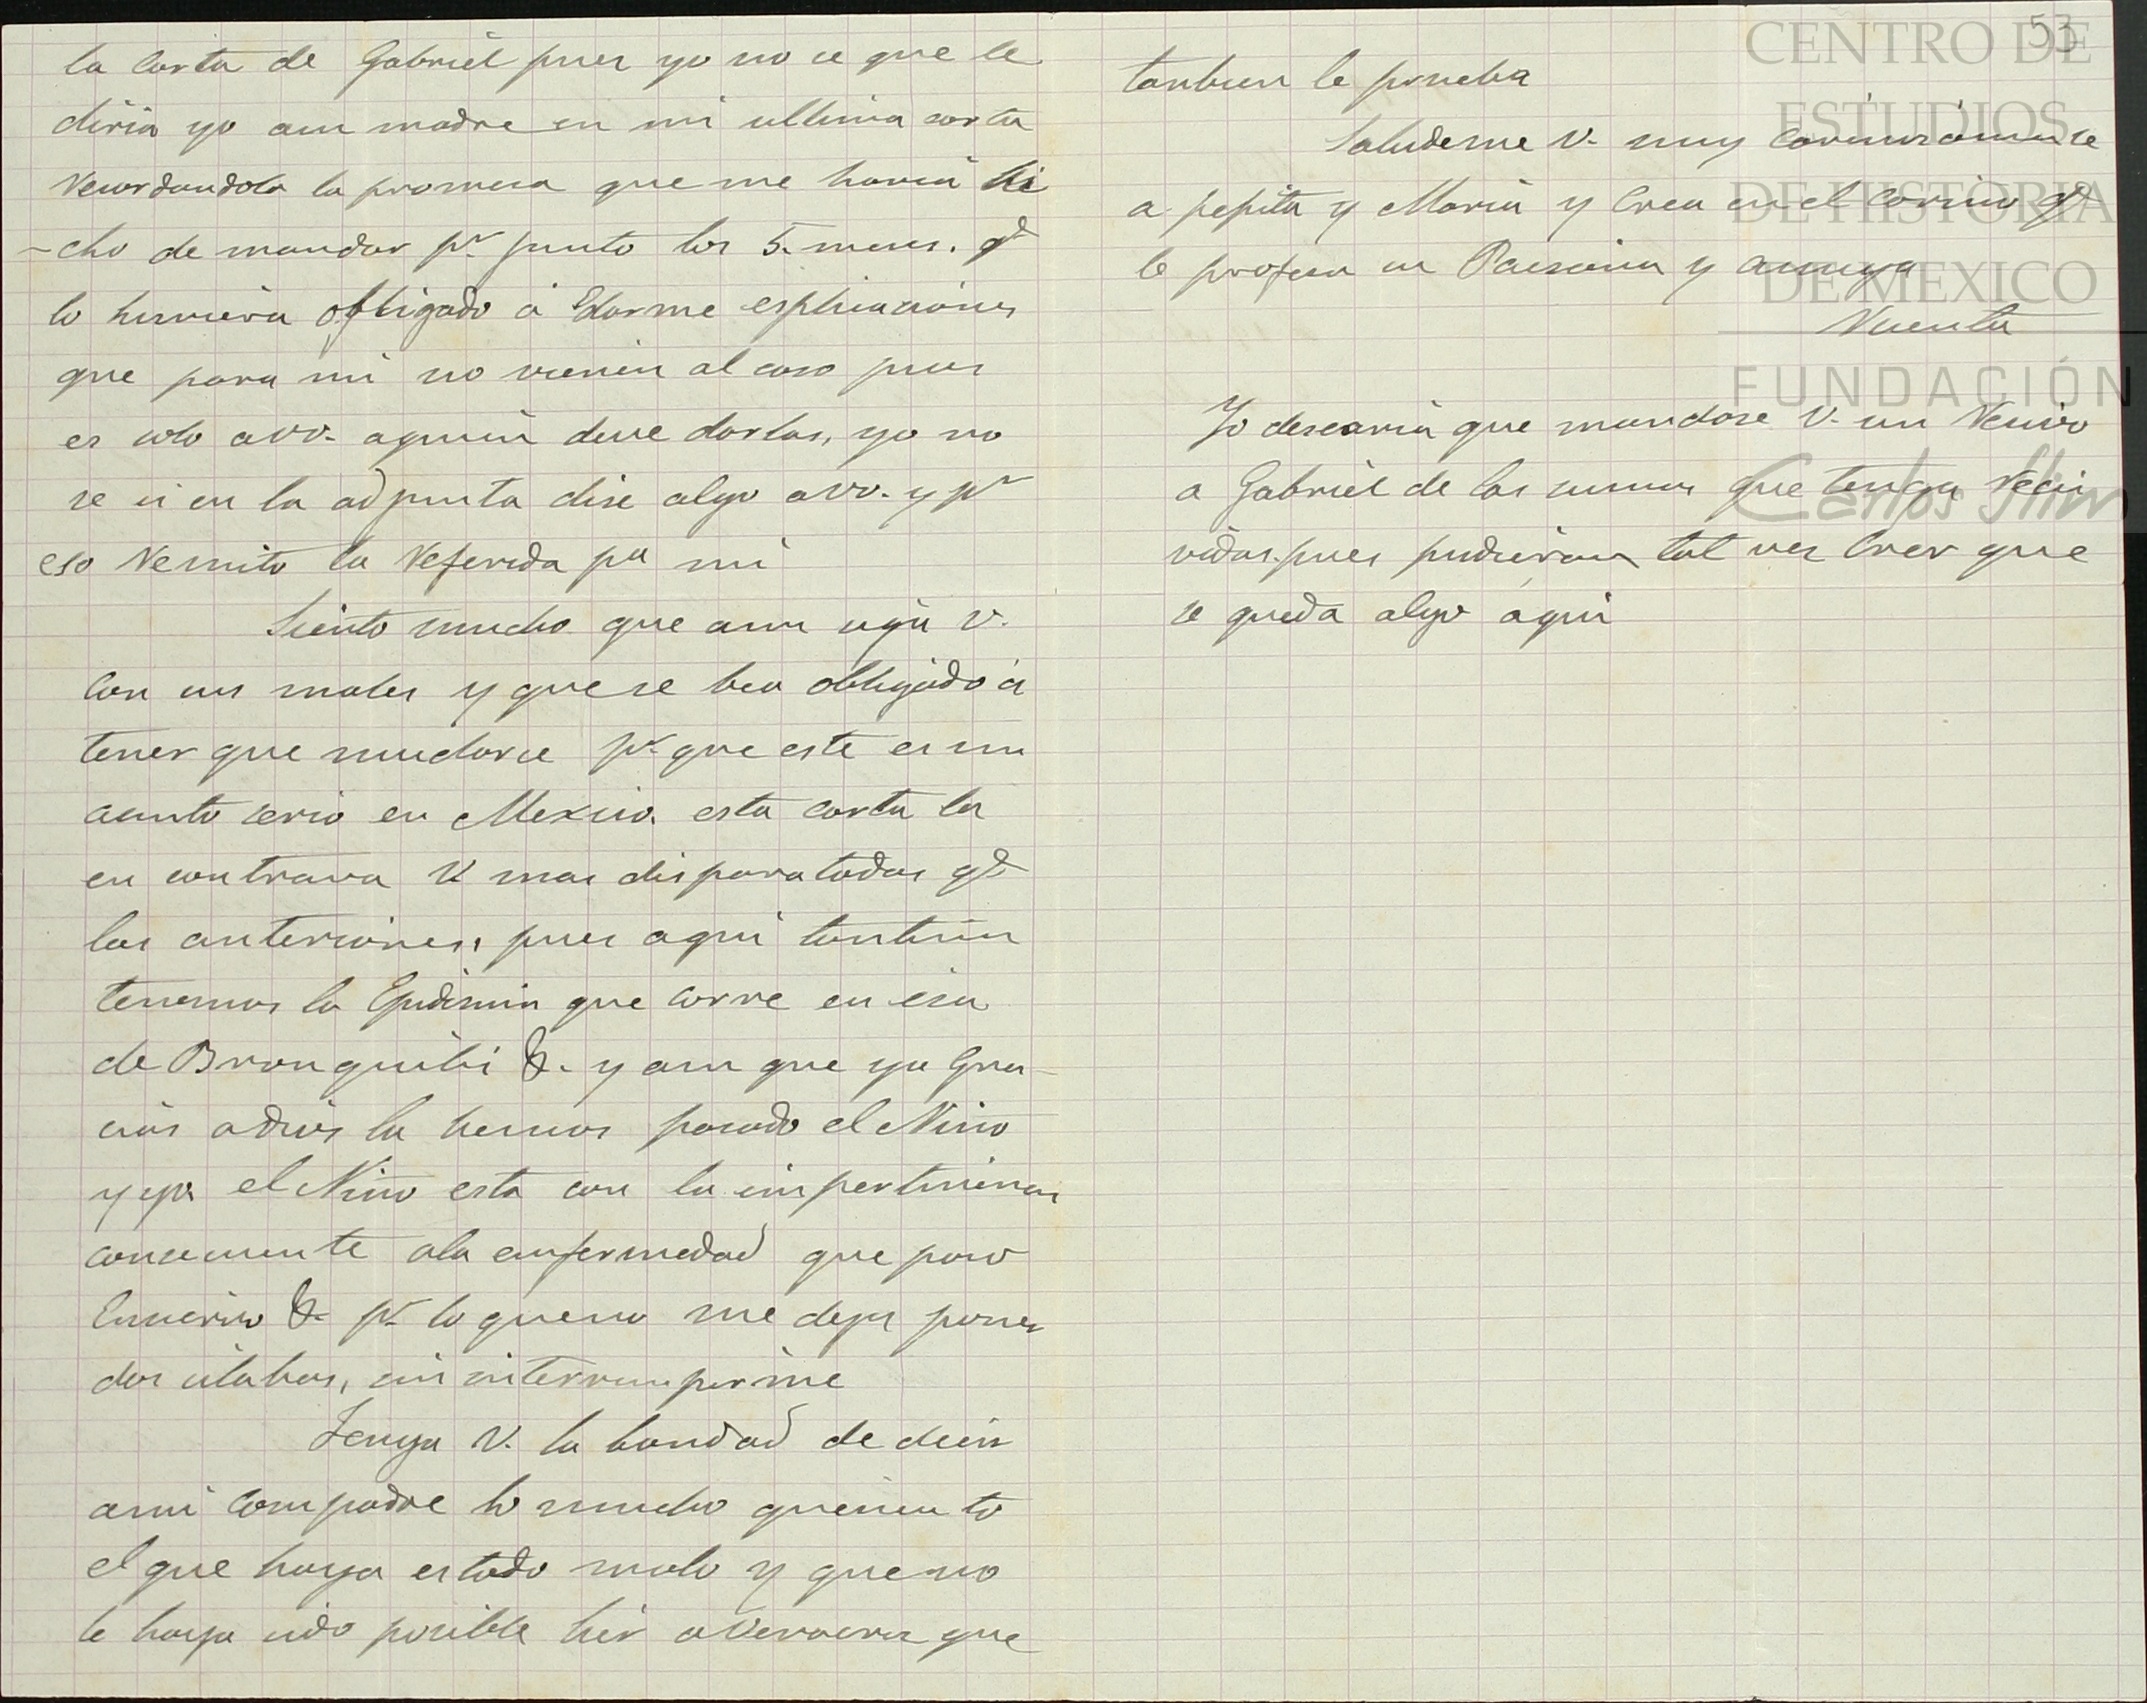 la Carta de Gabriél pues yo no ce que le
diria yo ami madre en mi ultima carta
Recordandola la promesa que me havia he
-cho de mandar pr. junto los 5. meses. qe
lo huviéra obligado á darme esplicaciónes
que para mi no vienen al caso pues
es solo avv. aquién deve darlas, yo no
se si en la adjunta dise algo avv. y pr
eso Remito la Referida pa mi
Siento mucho que aun siga V.
Con sus males y que se bea obligádo á
tener que mudarce pr. que este es un
asunto cerio en Mexico. esta carta la
en contrara V mas disparatadas qe
las anteriores, pues aqui tantién
tenemos la Epidémia que corre en ésa
de Bronquitis &. y aun que ya Gra-
ciás adios la hemos pasado el Nino
y yo. el Nino esta con la impertinéncia
concerniente ala emfermedad que paso
&. pr. lo queno me deja poner
dos silabas, sin interrumpirme
Tenga V. la bondad de decir
ami Compadre lo mucho quesiento
el que haya estado malo y que no
le haya sido posible hir aVeracruz que
53
tanbien le prueba
Saludeme V. muy Cariñosamente
a pepita y Maria y Crea en el Carino qe
le profesa su Paisana y amiga
Vicenta
Yo desearia que mandase V. un Recivo
a Gabriél de las sumas que tenga Reci
vidas. pues pudiéran tal ves Crer que
se queda algo aqui
CENTRO DE
ESTUDIOS
DE HISTORIA
DE MEXICO
FUNDACIÓN
Carlos Slim